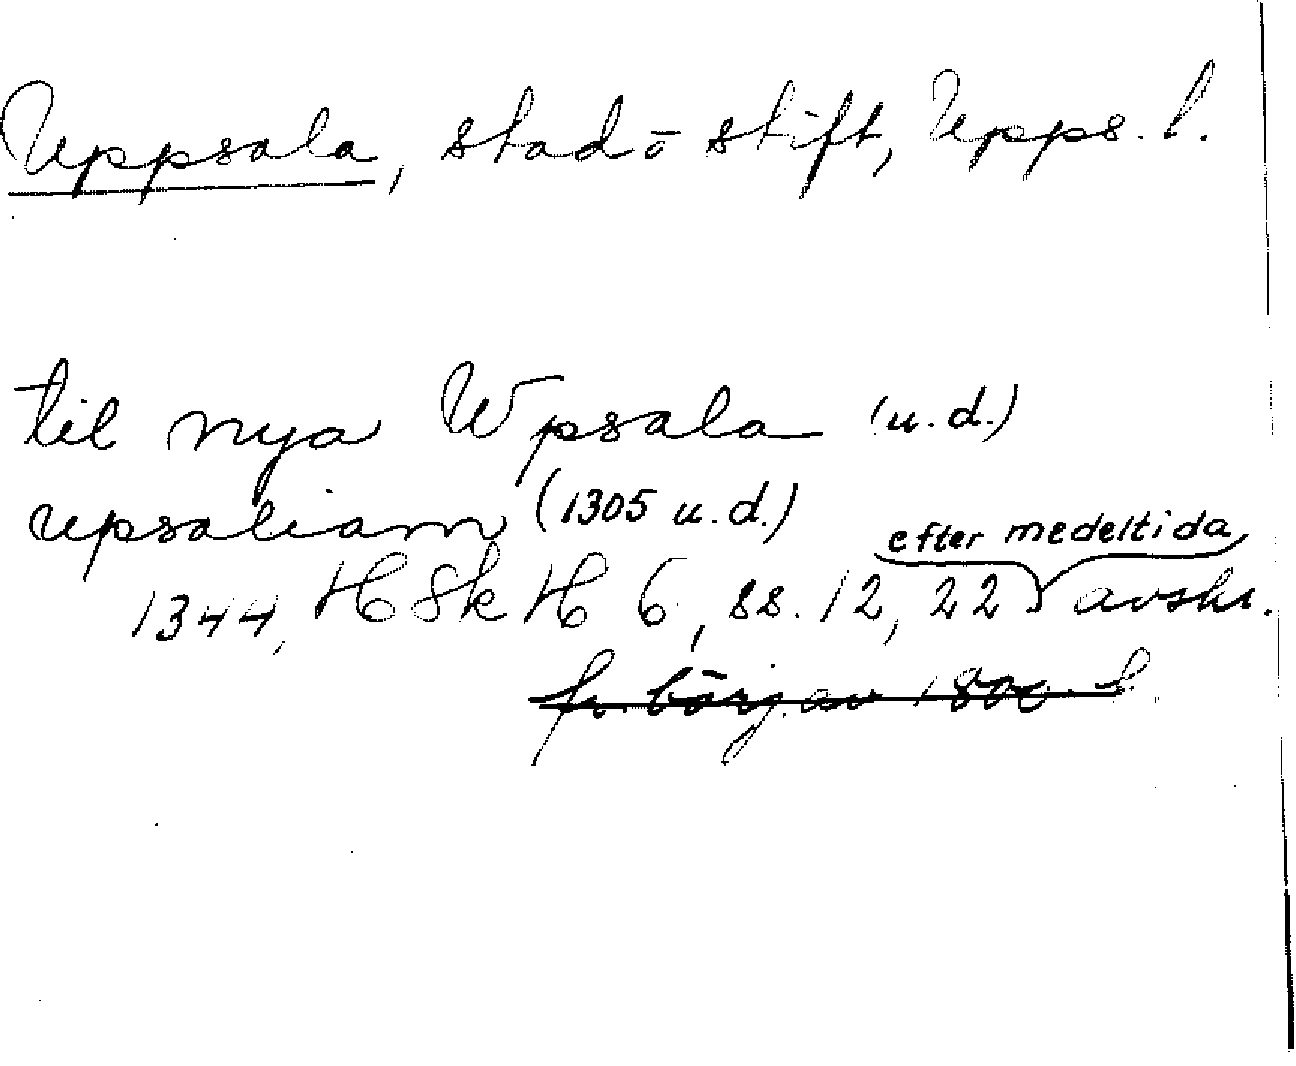 Uppsala, stad o stift, Upps. l.
til nya Wpsala (u.d.)
upsaliam (1305 u.d.)
efter medeltida
1344, H Sk H 6, ss. 12, 22 avskr.
fr. börj. av 1800-t.